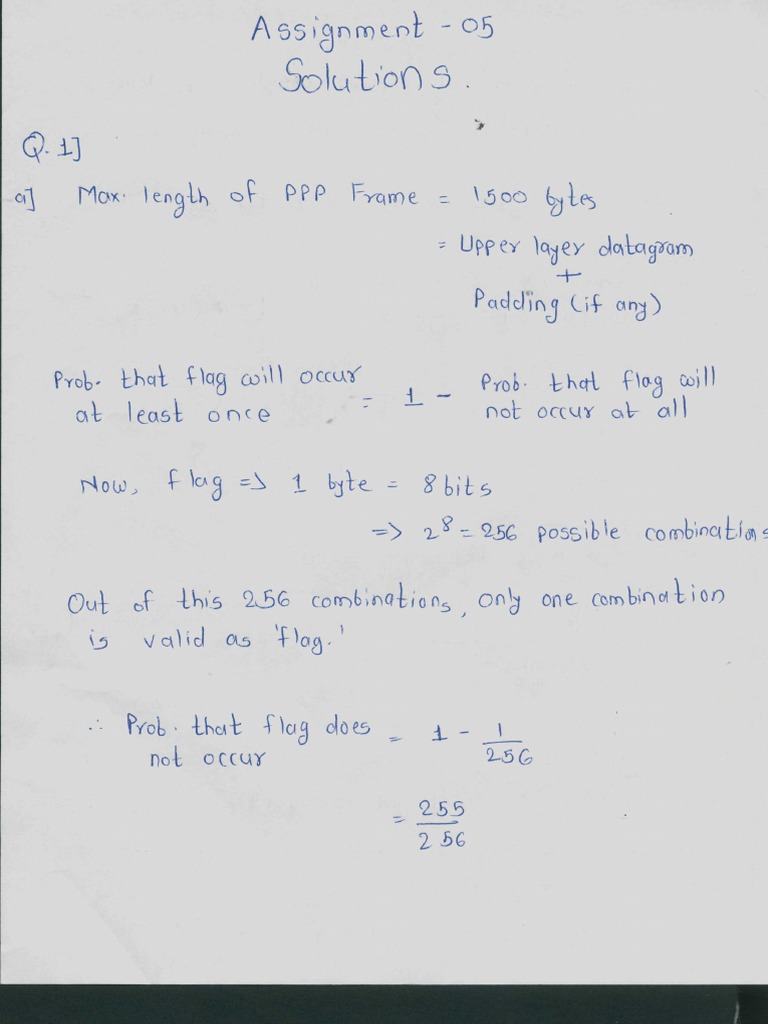 Assignment - 05
Solutions.
Q. 1]
a] Max. length of PPP Frame = 1500 bytes
= Upper layer datagram
+
Padding (if any)
Prob. that flag will occur at least once = 1 - Prob. that flag will not occur at all
Now, flag => 1 byte = 8 bits
=> 2⁸ = 256 possible combinations
Out of this 256 combinations, only one combination
is valid as 'flag.'
∴ Prob. that flag does not occur = 1 - 1/256
= 255/256